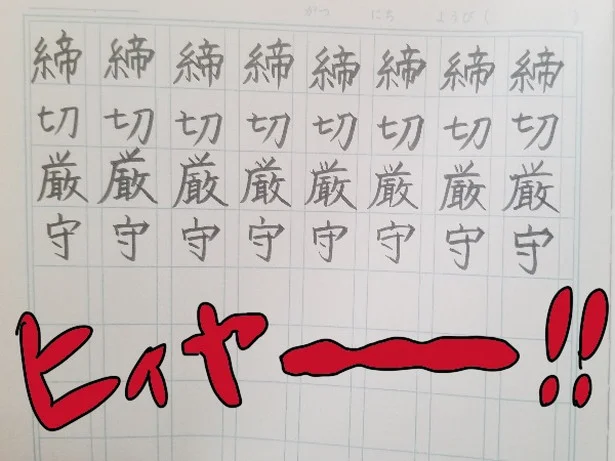 がつ にち ようび( )
締切厳守
締切厳守
締切厳守
締切厳守
締切厳守
締切厳守
締切厳守
締切厳守
ヒィヤー!!